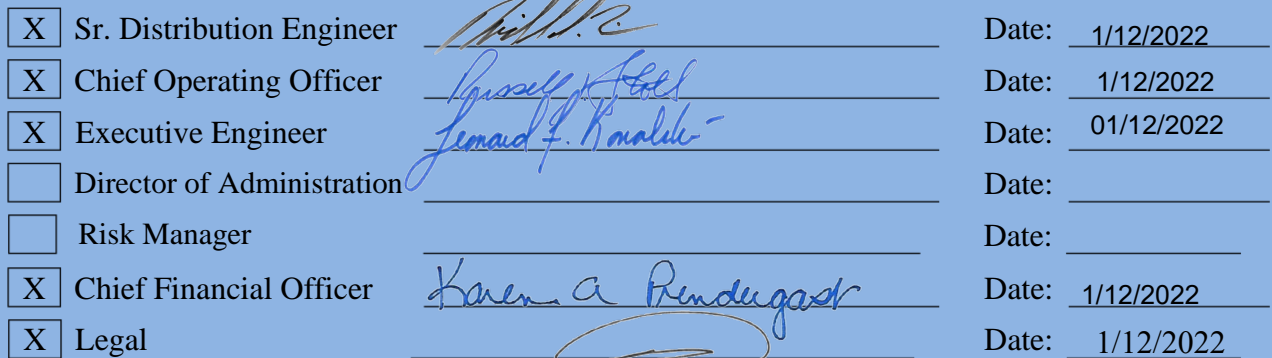 X Sr. Distribution Engineer Date: 1/12/2022
X Chief Operating Officer Russell Date: 1/12/2022
X Executive Engineer Leonard F. Date: 01/12/2022
Director of Administration Date:
Risk Manager Date:
X Chief Financial Officer Karen A Prendergast Date: 1/12/2022
X Legal Date: 1/12/2022